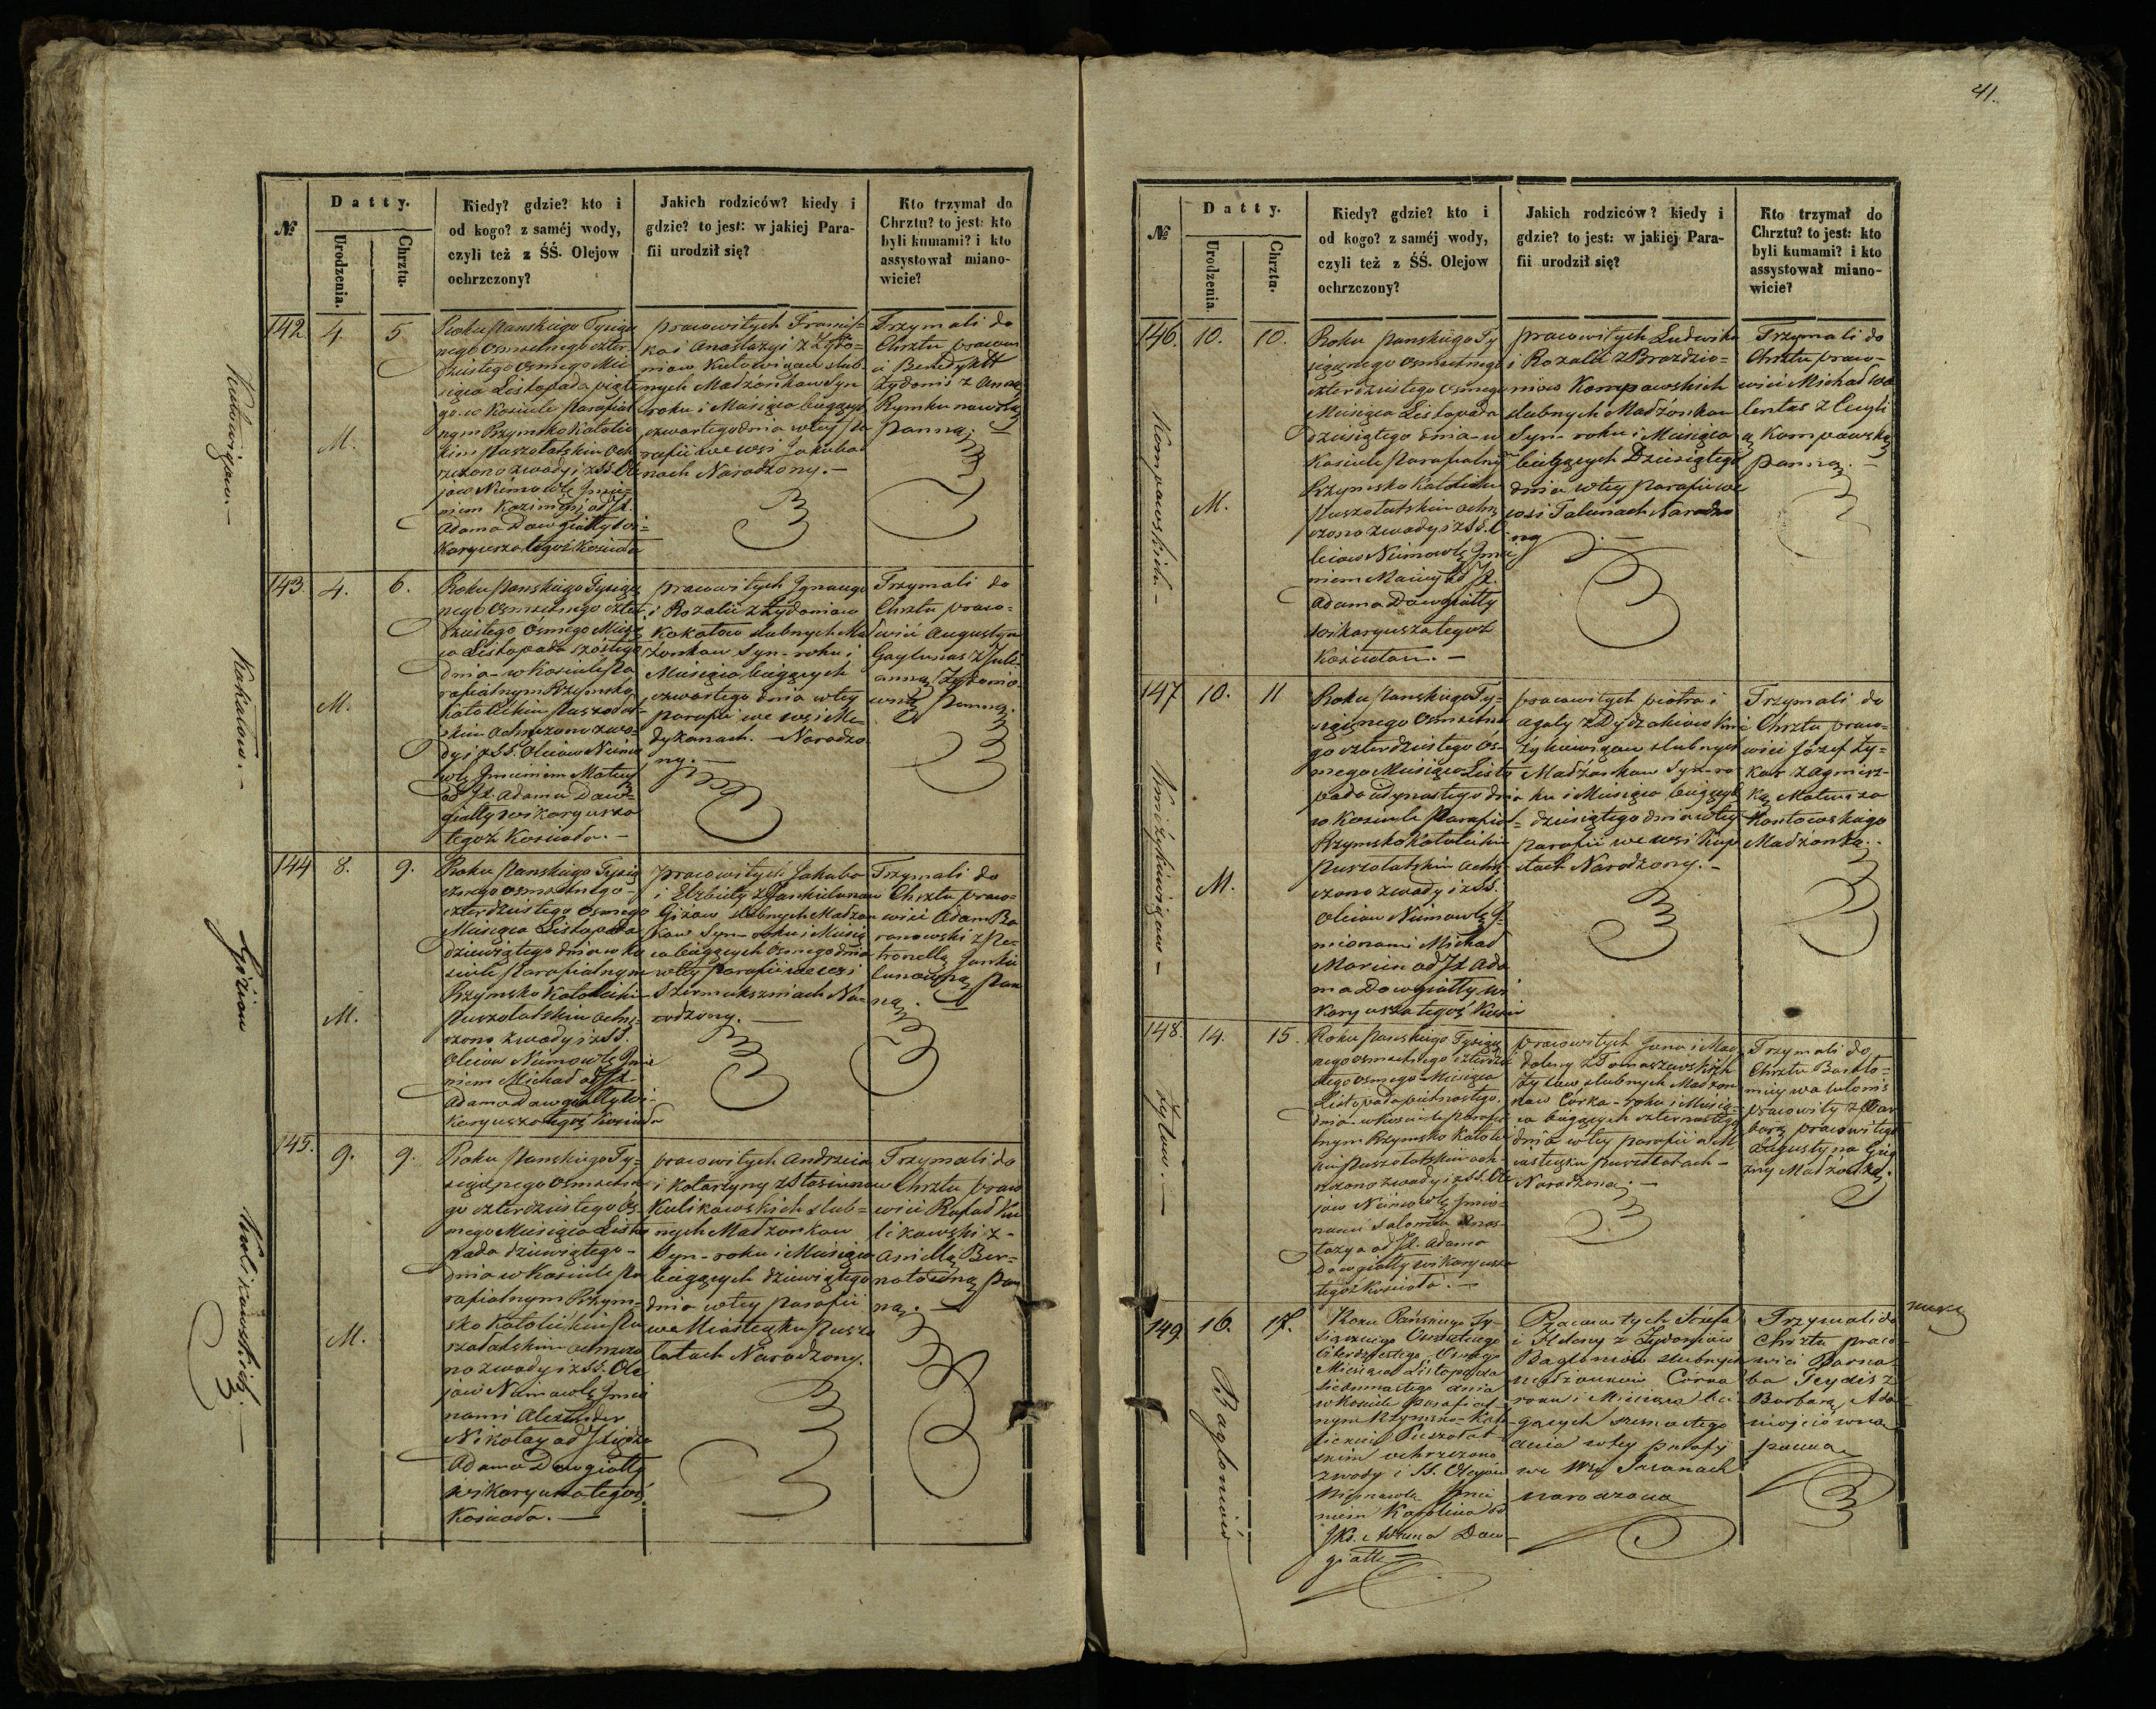 41.
№
Datty.
Urodzenia.
Chrztu.
Kiedy? gdzie? kto i
od kogo? z saméj wody,
czyli też z ŚŚ. Olejow
ochrzczony?
Jakich rodziców? kiedy i
gdzie? to jest: w jakiej Para-
fii urodził się?
Kto trzymał do
Chrztu? to jest: kto
byli kumami? i kto
assystował miano-
wicie?
142
4.
5
M.
Roku Panskiego Tysiąc
nego Osmsetnego czter-
dziestego Osmego Mie
siąca Listopada piąte
go w Kosciele Parafial
nym Rzymsko Katolic
kim Puszołatskim Och
rzczono zwody i z SS. Ole
jow Niemowlę Jmie-
niem Kazimierz od JX.
Adama Dowgiałły wi-
karyusza tegoż Koscioła
pracowitych Francisz-
ka i Anastazyi z Żydo=
niow slub=
nych Madżonkow Syn
roku i Miesiąca bieżących
czwartego dnia w tey Pa
rafii we wsi Jakubo
nach Narodzony. —
Trzymali do
Chrztu pracow
Benedykt
Żydonis z Anną
panną. —
143.
4.
6.
M.
Kokatow. —
Roku Panskiego Tysiąc
nego Osmsetnego czter
dziestego Ósmego Miesią
ca Listopada szóstego
dnia - w Kosciele Pa
rafialnym Rzymsko
Katolickim Puszołat-
skim Ochrzczono z wo-
dy i z SS. Oleiow Niemo
wlę Jmieniem Mateusz
od JX. Adama Dow-
giałły wikaryusza
tegoż Koscioła. —
pracowitych Jgnacego
i Rozalii z Żydoniow
Kokatow slubnych Ma
dżonkow Syn - roku i
Miesiąca bieżących
czwartego dnia w tey
parafii we wsi Me-
dykanach. — Narodzo
ny. —
Trzymali do
Chrztu praco=
wici Augustyn
z Juli
anną Żydonio
wną Panną.
144
8.
9.
M.
Giżow
Roku Panskiego Tysią
cznego Osmsetnego -
czterdziestego Osmego
Miesiąca Listopada
dziewiątego dnia w Ko
sciele Parafialnym
Rzymsko Katolickim
Puszołatskim Ochrz-
czono z wody i z SS.
Oleiow Niemowlę Jmie
niem Michał od JX.
Adama Dowgiałły Wi-
karyusza tegoż Koscioła
pracowitych Jakuba
i Elżbiety z Jankielunow
Giżow slubnych Madżon
kow Syn - roku i Miesią
ca bieżących Osmego dnia
w tey parafii we wsi
Szermukszniach Na-
rodzony. —
Trzymali do
Chrztu praco=
wici Adam Ba
ranowski z Pe-
tronellą Janki
lunowną Pan
ną.
145.
9.
9.
M.
Kulikowskich. —
Roku Panskiego Ty-
siącznego Osmsetne
go czterdziestego Os-
mego Miesiąca Listo
pada dziewiątego -
dnia w Kosciele Pa
rafialnym Rzym-
sko Katolickim Pu
szołatskim Ochrzczo
no z wody i z SS. Ole
jow Niemowlę Jmio
nami Alexander
Nikołay od JXiędza
Adama Dowgiałły
wikaryusza tegoż
Koscioła. —
pracowitych Andrzeia
i Katarzyny z Stasiunow
Kulikowskich slub=
nych Madżonkow
Syn - roku i Miesiąca
bieżących dziewiątego
dnia w tey parafii
we Miasteczku Pusza
łatach Narodzony.
Trzymali do
Chrztu praco
wici Rafał Ku
likowski z -
Anielą Ber-
natowną Pan
ną. —
№
Datty.
Urodzenia
Chrztu.
Kiedy? gdzie? kto i
od kogo? z saméj wody,
czyli też z ŚŚ. Olejow
ochrzczony?
Jakich rodziców? kiedy i
gdzie? to jest: w jakiej Para-
fii urodził się?
Kto trzymał do
Chrztu? to jest: kto
byli kumami? i kto
assystował miano-
wicie?
146.
10.
10.
M.
Kompowskich —
Roku Panskiego Ty
siącznego Osmsetnego
czterdziestego Osmego
Miesiąca Listopada
dziesiątego dnia - w
Kosciele Parafialnym
Rzymsko Katolickim
Puszołatskim Ochrz
czono z wody i z SS. O
leiow Niemowlę Jmie
niem Maciey od JX.
Adama Dowgiałły
wikaryusza tegoż
Kosciołau. —
pracowitych Ludwika
i Rozalii z Brazdzio-
niow Kompowskich
slubnych Madżonkow
Syn - roku i Miesiąca
bieżących Dziesiątego
dnia w tey Parafii we
wsi Talunach Narodzo
ny
Trzymali do
Chrztu praco-
wici Michał Wa
lentas z Cecyli
ą Kompowską
panną. —
147
10.
11
M.
Roku Panskiego Ty=
siącznego Osmsetne
go czterdziestego Ós-
mego Miesiąca Listo
pada iedynastego dnia
w Kosciele Parafial=
Rzymsko Katolickim
Puszołatskim Ochrz
czono z wody i z SS.
Oleiow Niemowlę J-
mionami Michał
Marcin od JX Ada
ma Dowgiałły wi
karyusza tegoż Kosci
pracowitych Piotra i
Agaty z
slubnych
Madżonkow Syn - ro
ku i Miesiąca bieżących
dziesiątego dnia w tey
parafii we wsi Kup
stach Narodzony. —
Trzymali do
Chrztu praco-
wici Józef Ży=
kas z Agniesz-
ką Mateusza
Montowskiego
Madżonką.
148.
14.
15.
Żylow. —
Roku Panskiego Tysiąc
nego Osmsetnego czterdzie
stego Osmego Miesiąca
Listopada piętnastego
dnia - w Kosciele Parafial
nym Rzymsko Katolic
kim Puszołatskim och-
rzczono z wody i z SS. Ole
jow Niemowlę Jmio-
nami Salomea Anas-
tazya od JX. Adama
Dowgiałły wikaryusza
tegoż Kosciola. —
pracowitych Jana i Mag
daleny z Tomaszewskich
Żylow slubnych Madżon
kow Corka - roku i Miesią-
ca bieżących czternastego
dnia w tey parafii w Mi
asteczku Puszołatach -
Narodzona. —
Trzymali do
Chrztu Bartło=
miey Walulonis
pracowity z Bar
barą pracowitego
Augustyna
Madżonką.
149.
16.
17.
Bagloniow
Roku Pańskiego Ty-
siącznego Osmsetnego
Czterdziestego Osmego
Miesiąca Listopada
Siedmnastego dnia
w Kosciele parafial-
nym Rzymsko-Kato-
lickim Puszołat-
skim ochrzczono
z wody i SS. Olejow
Niemowle Jmie
niem Karolina od
JKs. Adama Dow-
giałły
Pracowitych Józefa
i Heleny z Żydoniow
Bagloniow slubnych
małżonkow Córka
roku i Miesiąca bie-
żących szesnastego
dnia w tey parafij
we Wsi
narodzona
Trzymali do
Chrztu praco-
wici Barna-
ba z
Barbarą Ada
mojciówną
panną